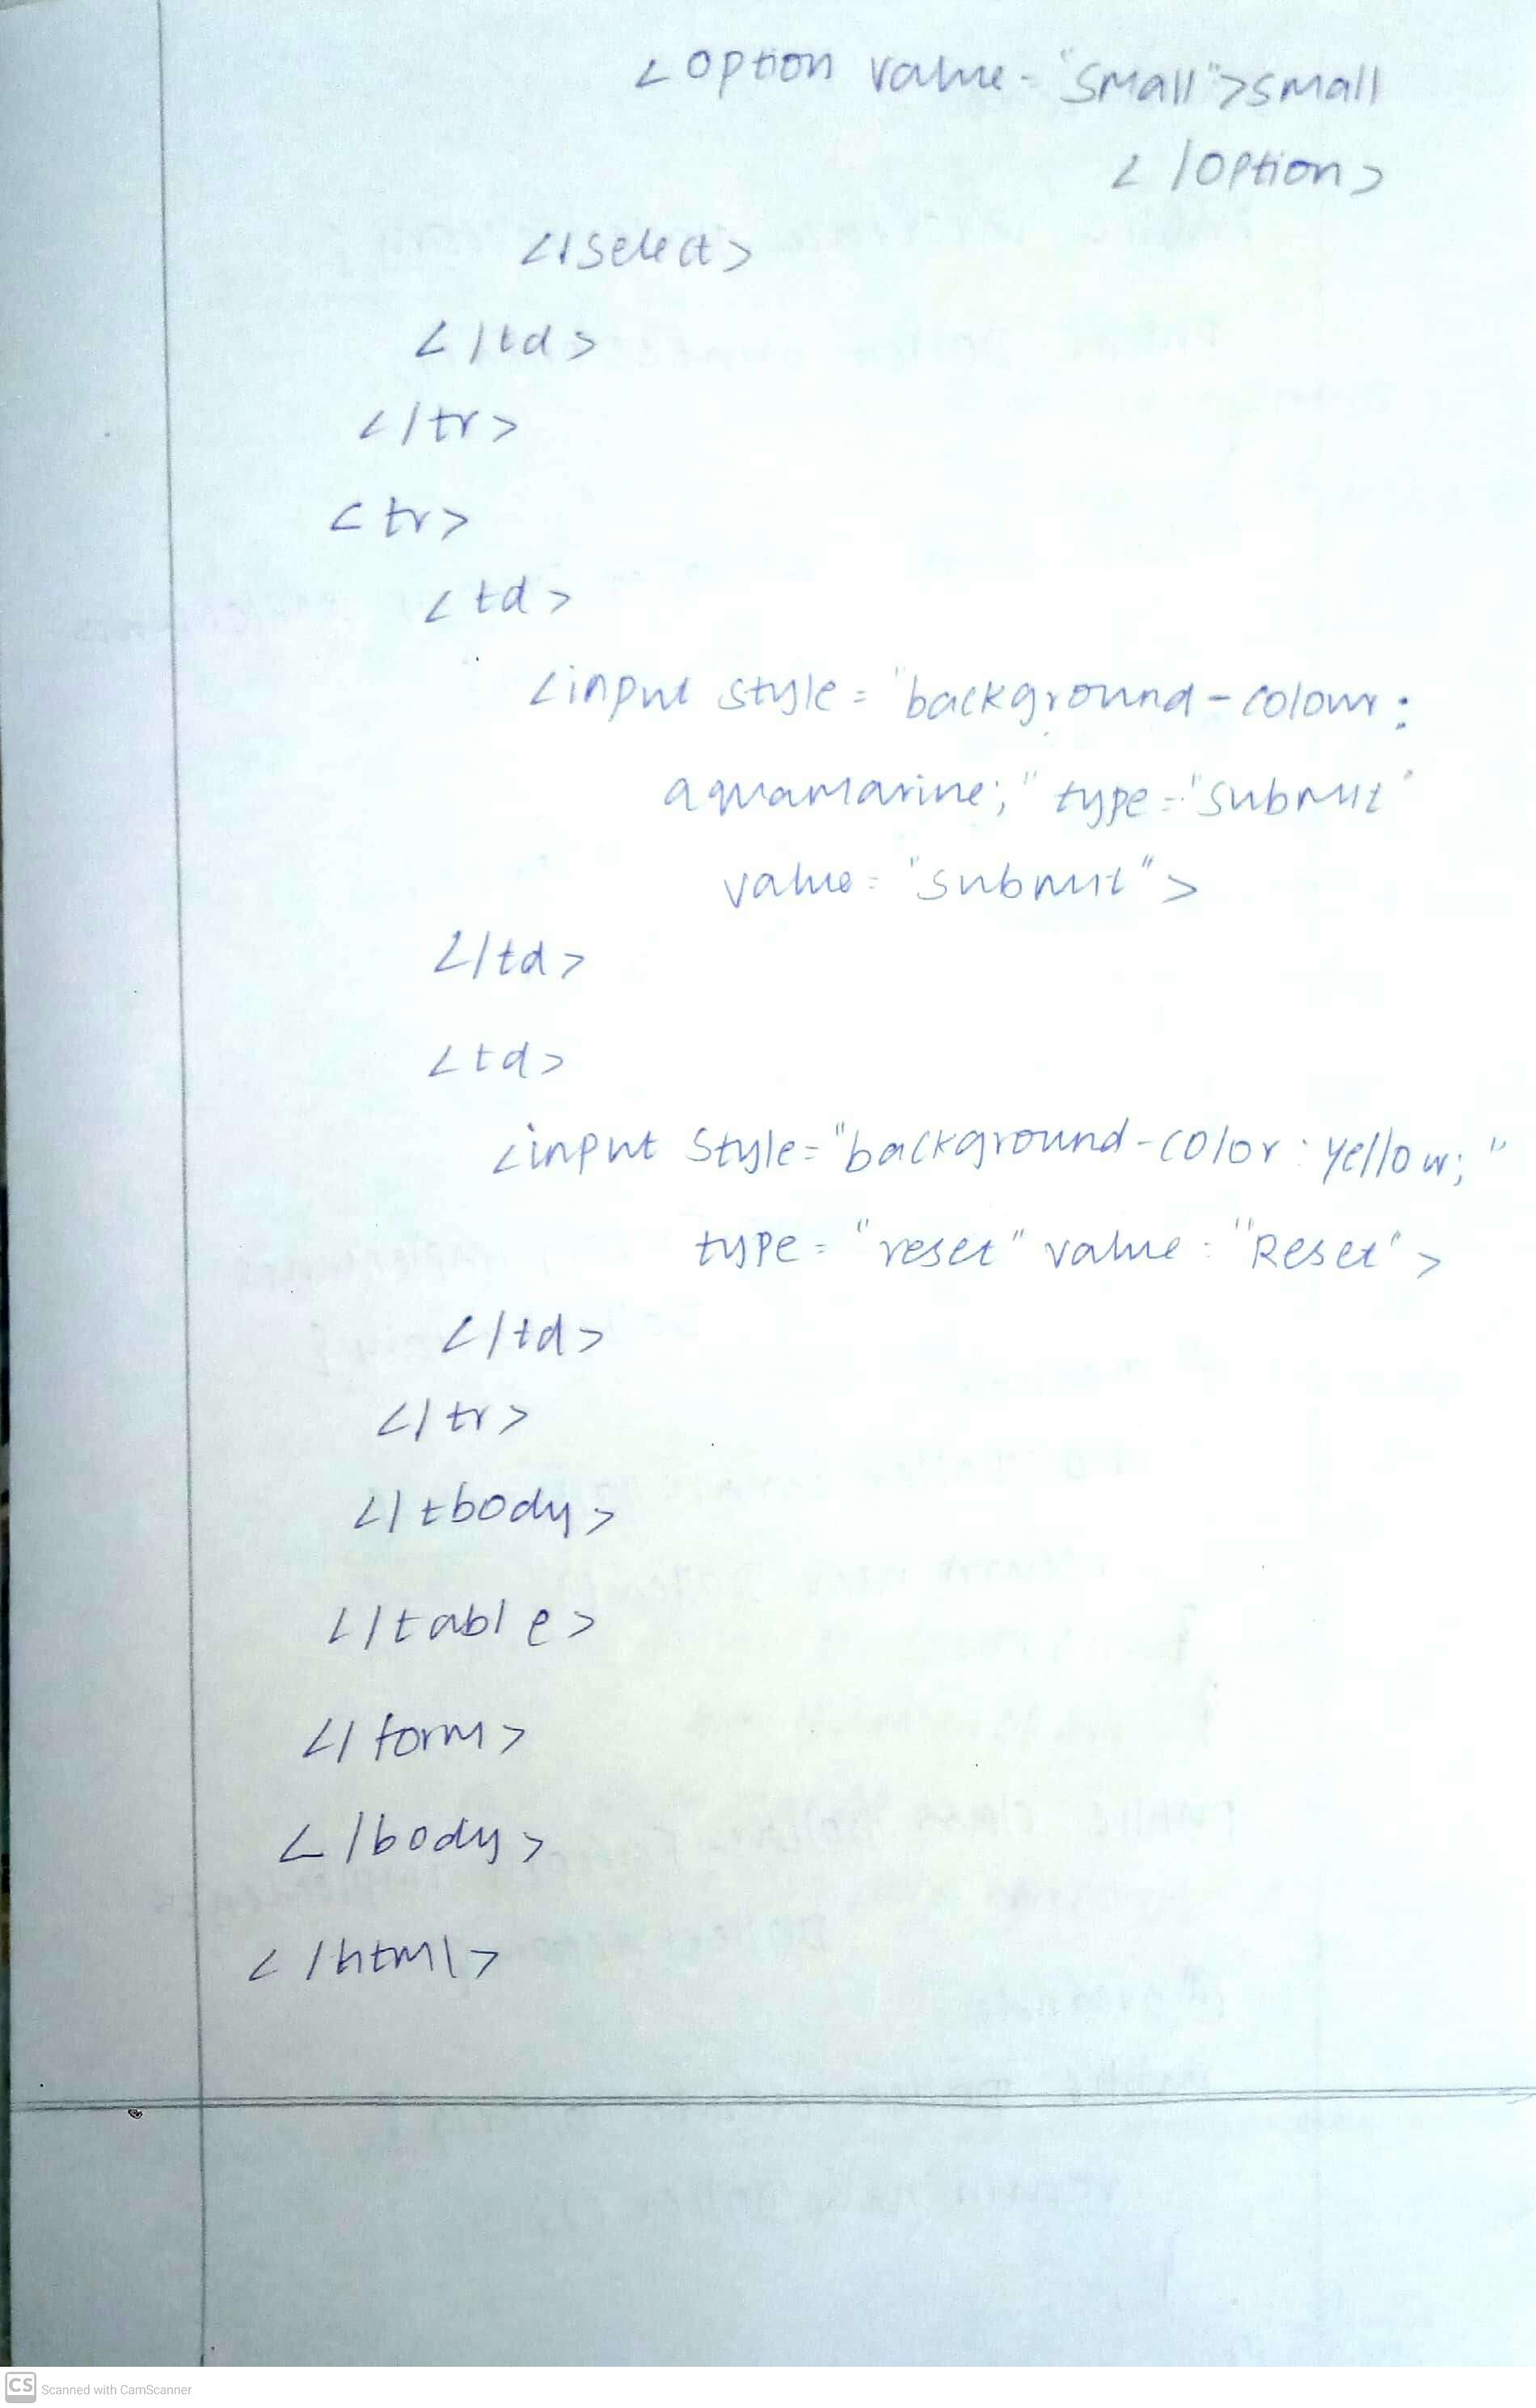 <option value="small">small
</option>
</select>
</td>
</tr>
<tr>
<td>
<input style="background-colour:
aquamarine;" type="submit"
value="submit">
</td>
<td>
<input style="background-color:yellow;"
type="reset" value="Reset">
</td>
</tr>
</tbody>
</table>
</form>
</body>
</html>
CS Scanned with CamScanner